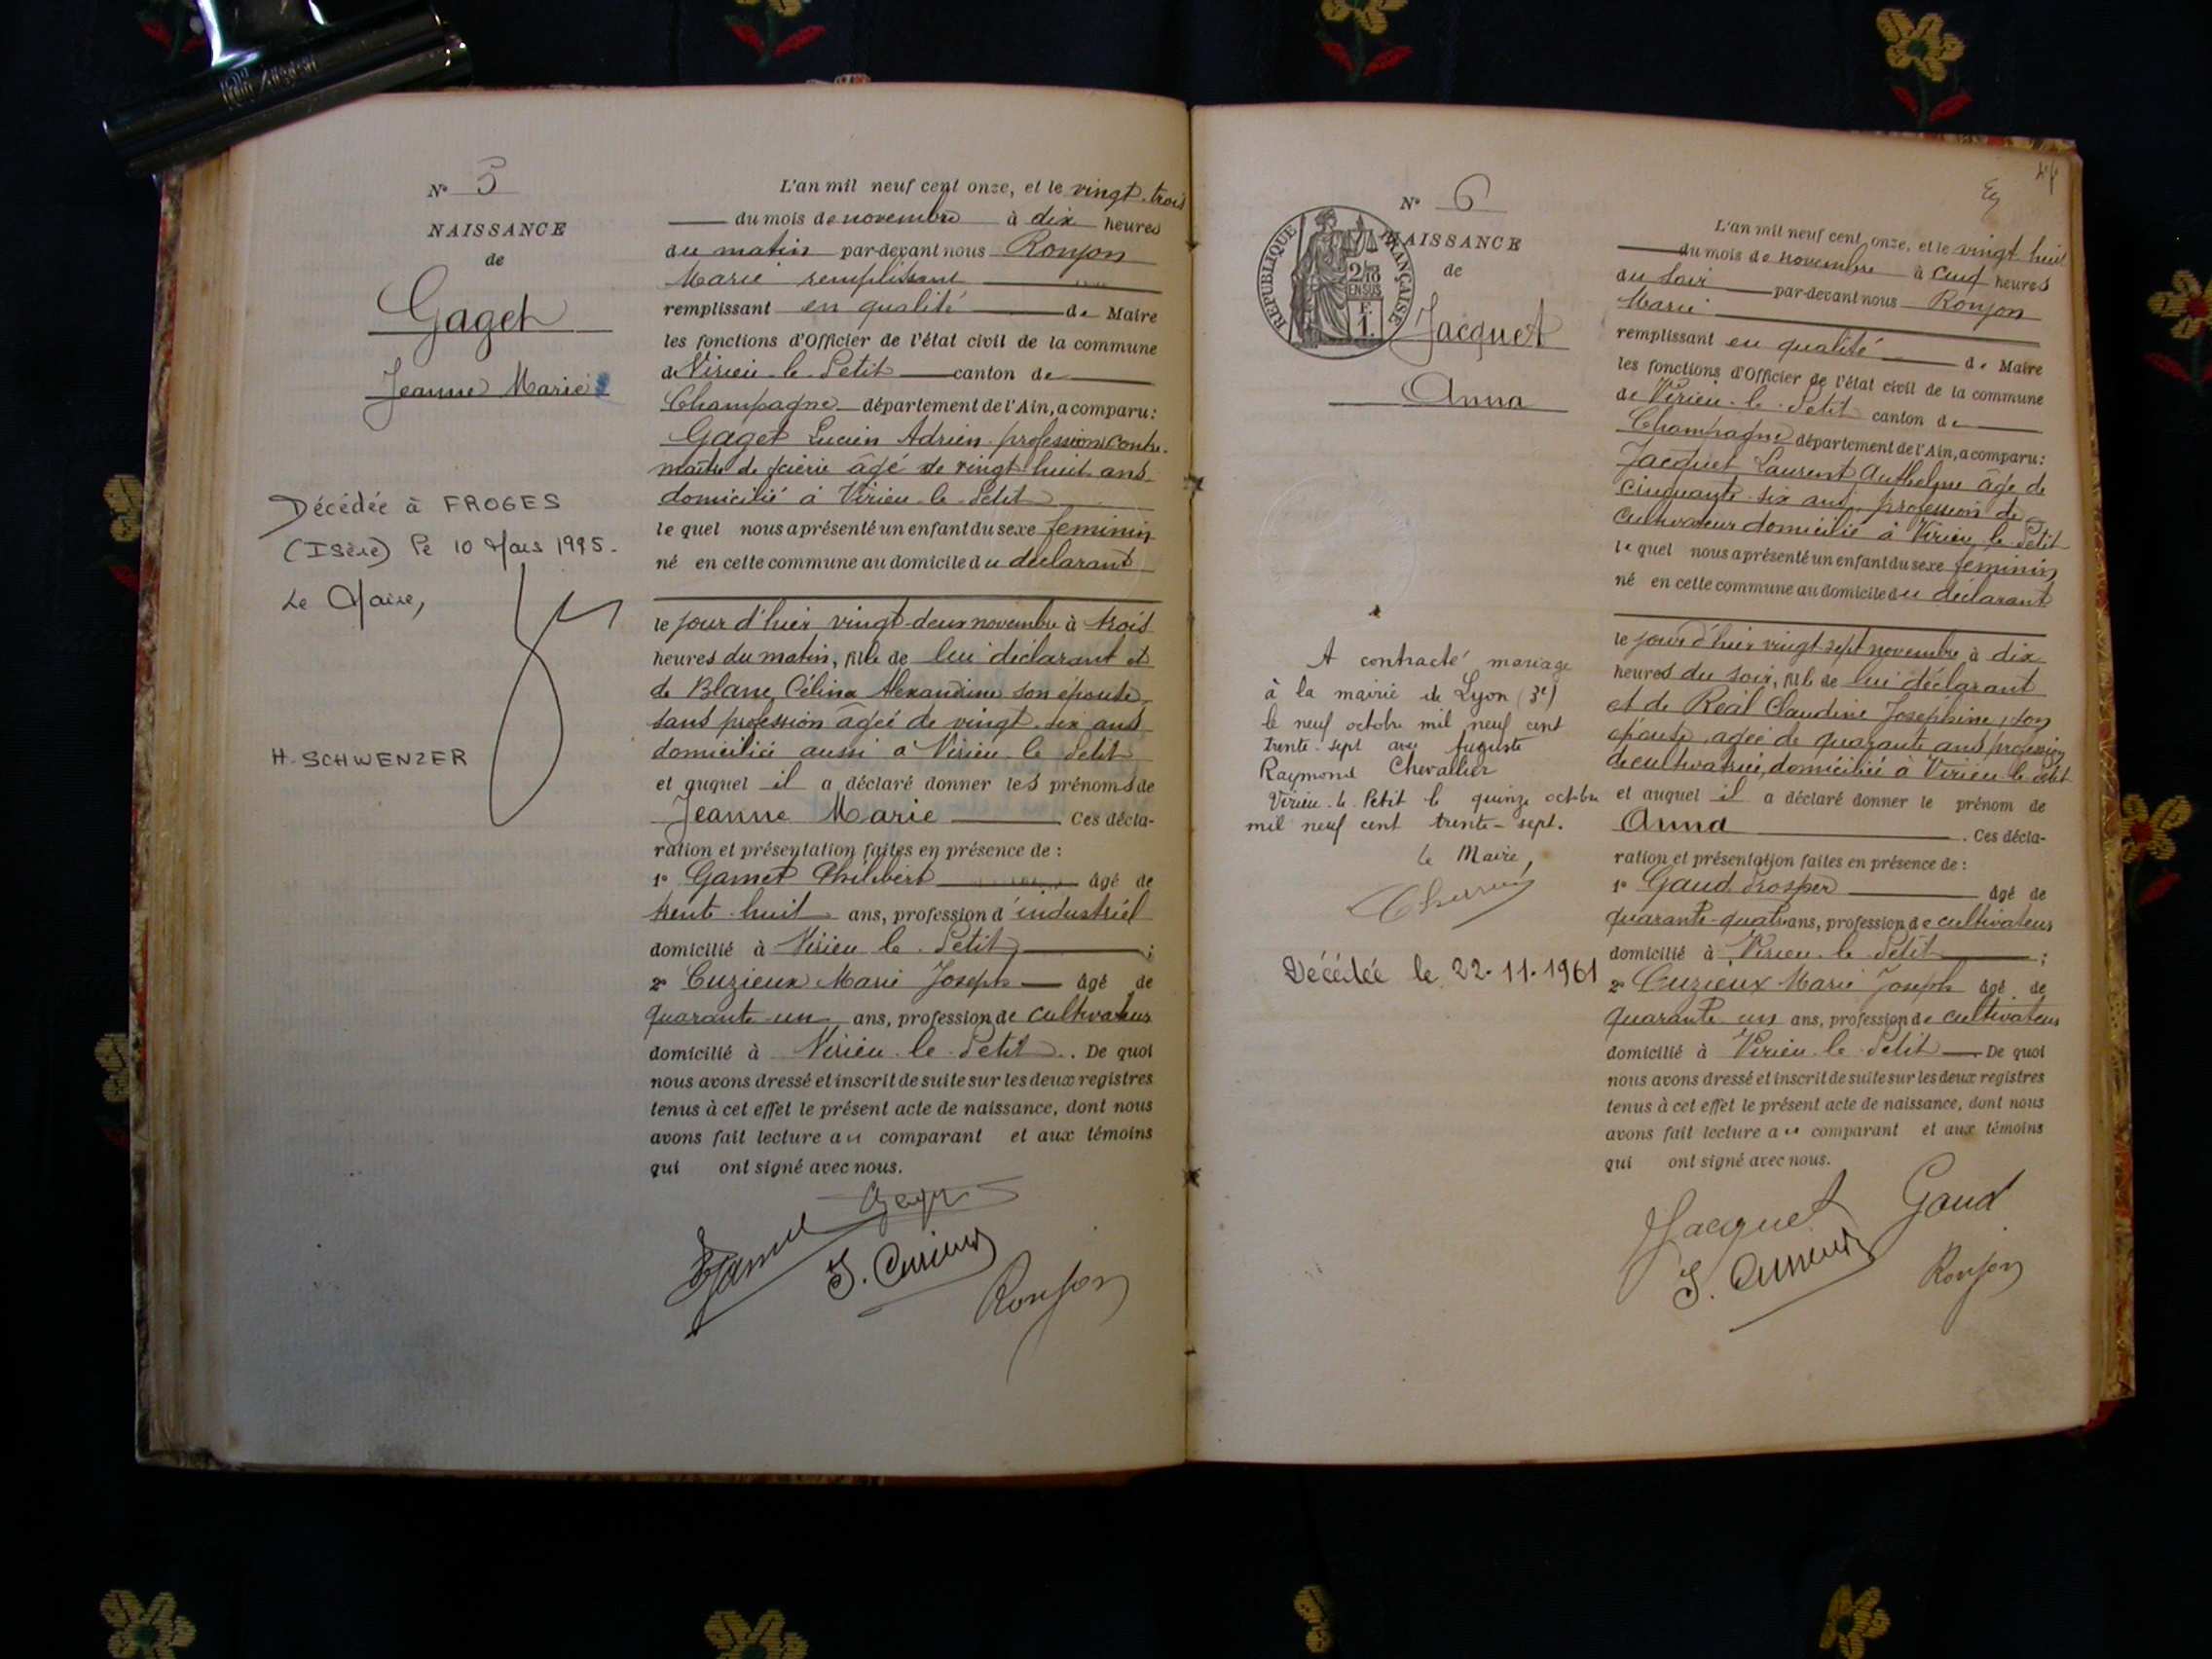 N° 5
NAISSANCE
de
Gaget
Jeanne Marie
Décédée à FROGES
(Isère) le 10 Mars 1995.
Le Maire,
H. SCHWENZER
L'an mil neuf cent onze, et le vingt-trois
du mois de novembre à dix heures
du matin par-devant nous Ronjon
Marie remplissant
remplissant en qualité de Maire
les fonctions d'Officier de l'état civil de la commune
de Virieu-le-Petit canton de
Champagne département de l'Ain, a comparu:
Gaget Lucien Adrien profession contre-
maître de scierie âgé de vingt-huit ans
domicilié à Virieu-le-Petit
lequel nous a présenté un enfant du sexe feminin
né en cette commune au domicile du déclarant
le jour d'hier vingt-deux novembre à trois
heures du matin, fille de lui déclarant et
de Blanc Célina Alexandrine son épouse
sans profession âgée de vingt-six ans
domiciliée aussi a Virieu-le-Petit
et auquel il a déclaré donner les prénoms de
Jeanne Marie Ces décla-
ration et présentation faites en présence de:
1° Gamet Philibert âgé de
trente-huit ans, profession d'industriel
domicilié à Virieu-le-Petit;
2° Cuzieux Marie Joseph âgé de
quarante-un ans, profession de cultivateur
domicilié à Virieu-le-Petit. De quoi
nous avons dressé et inscrit de suite sur les deux registres
tenus à cet effet le présent acte de naissance, dont nous
avons fait lecture au comparant et aux témoins
qui ont signé avec nous.
Gaget
Gamet J. Cuzieux
Ronjon
N° 6
NAISSANCE
de
REPUBLIQUE FRANÇAISE
2/10
EN SUS
F.
1.
Jacquet
Anna
A contracté mariage
à la mairie de Lyon (3e)
le neuf octobre mil neuf cent
trente-sept avec Auguste
Raymond Chevallier
Virieu-le-Petit le quinze octobre
mil neuf cent trente-sept.
le Maire,
Décédée le 22-11-1961
L'an mil neuf cent onze, et le vingt huit
du mois de novembre à cinq heures
du soir par-devant nous Ronjon
Marie
remplissant en qualité de Maire
les fonctions d'Officier de l'état civil de la commune
de Virieu-le-Petit canton de
Champagne département de l'Ain, a comparu:
Jacquet Laurent Anthelme âgé de
cinquante-six ans, profession de
cultivateur domicilié à Virieu-le-Petit
lequel nous a présenté un enfant du sexe feminin
né en cette commune au domicile du déclarant
le jour d'hier vingt-sept novembre à dix
heures du soir, fille de lui déclarant
et de Réal Claudine Josephine, son
épouse, agée de quarante ans profession
de cultivatrice, domiciliée à Virieu-le-Petit
et auquel il a déclaré donner le prénom de
Anna. Ces décla-
ration et présentation faites en présence de:
1° Gaud Prosper âgé de
quarante-quatre ans, profession de cultivateur
domicilié à Virieu-le-Petit;
2° Cuzieux Marie Joseph âgé de
quarante un ans, profession de cultivateur
domicilié à Virieu-le-Petit De quoi
nous avons dressé et inscrit de suite sur les deux registres
tenus à cet effet le présent acte de naissance, dont nous
avons fait lecture au comparant et aux témoins
qui ont signé avec nous.
Jacquet Gaud
J. Cuzieux Ronjon